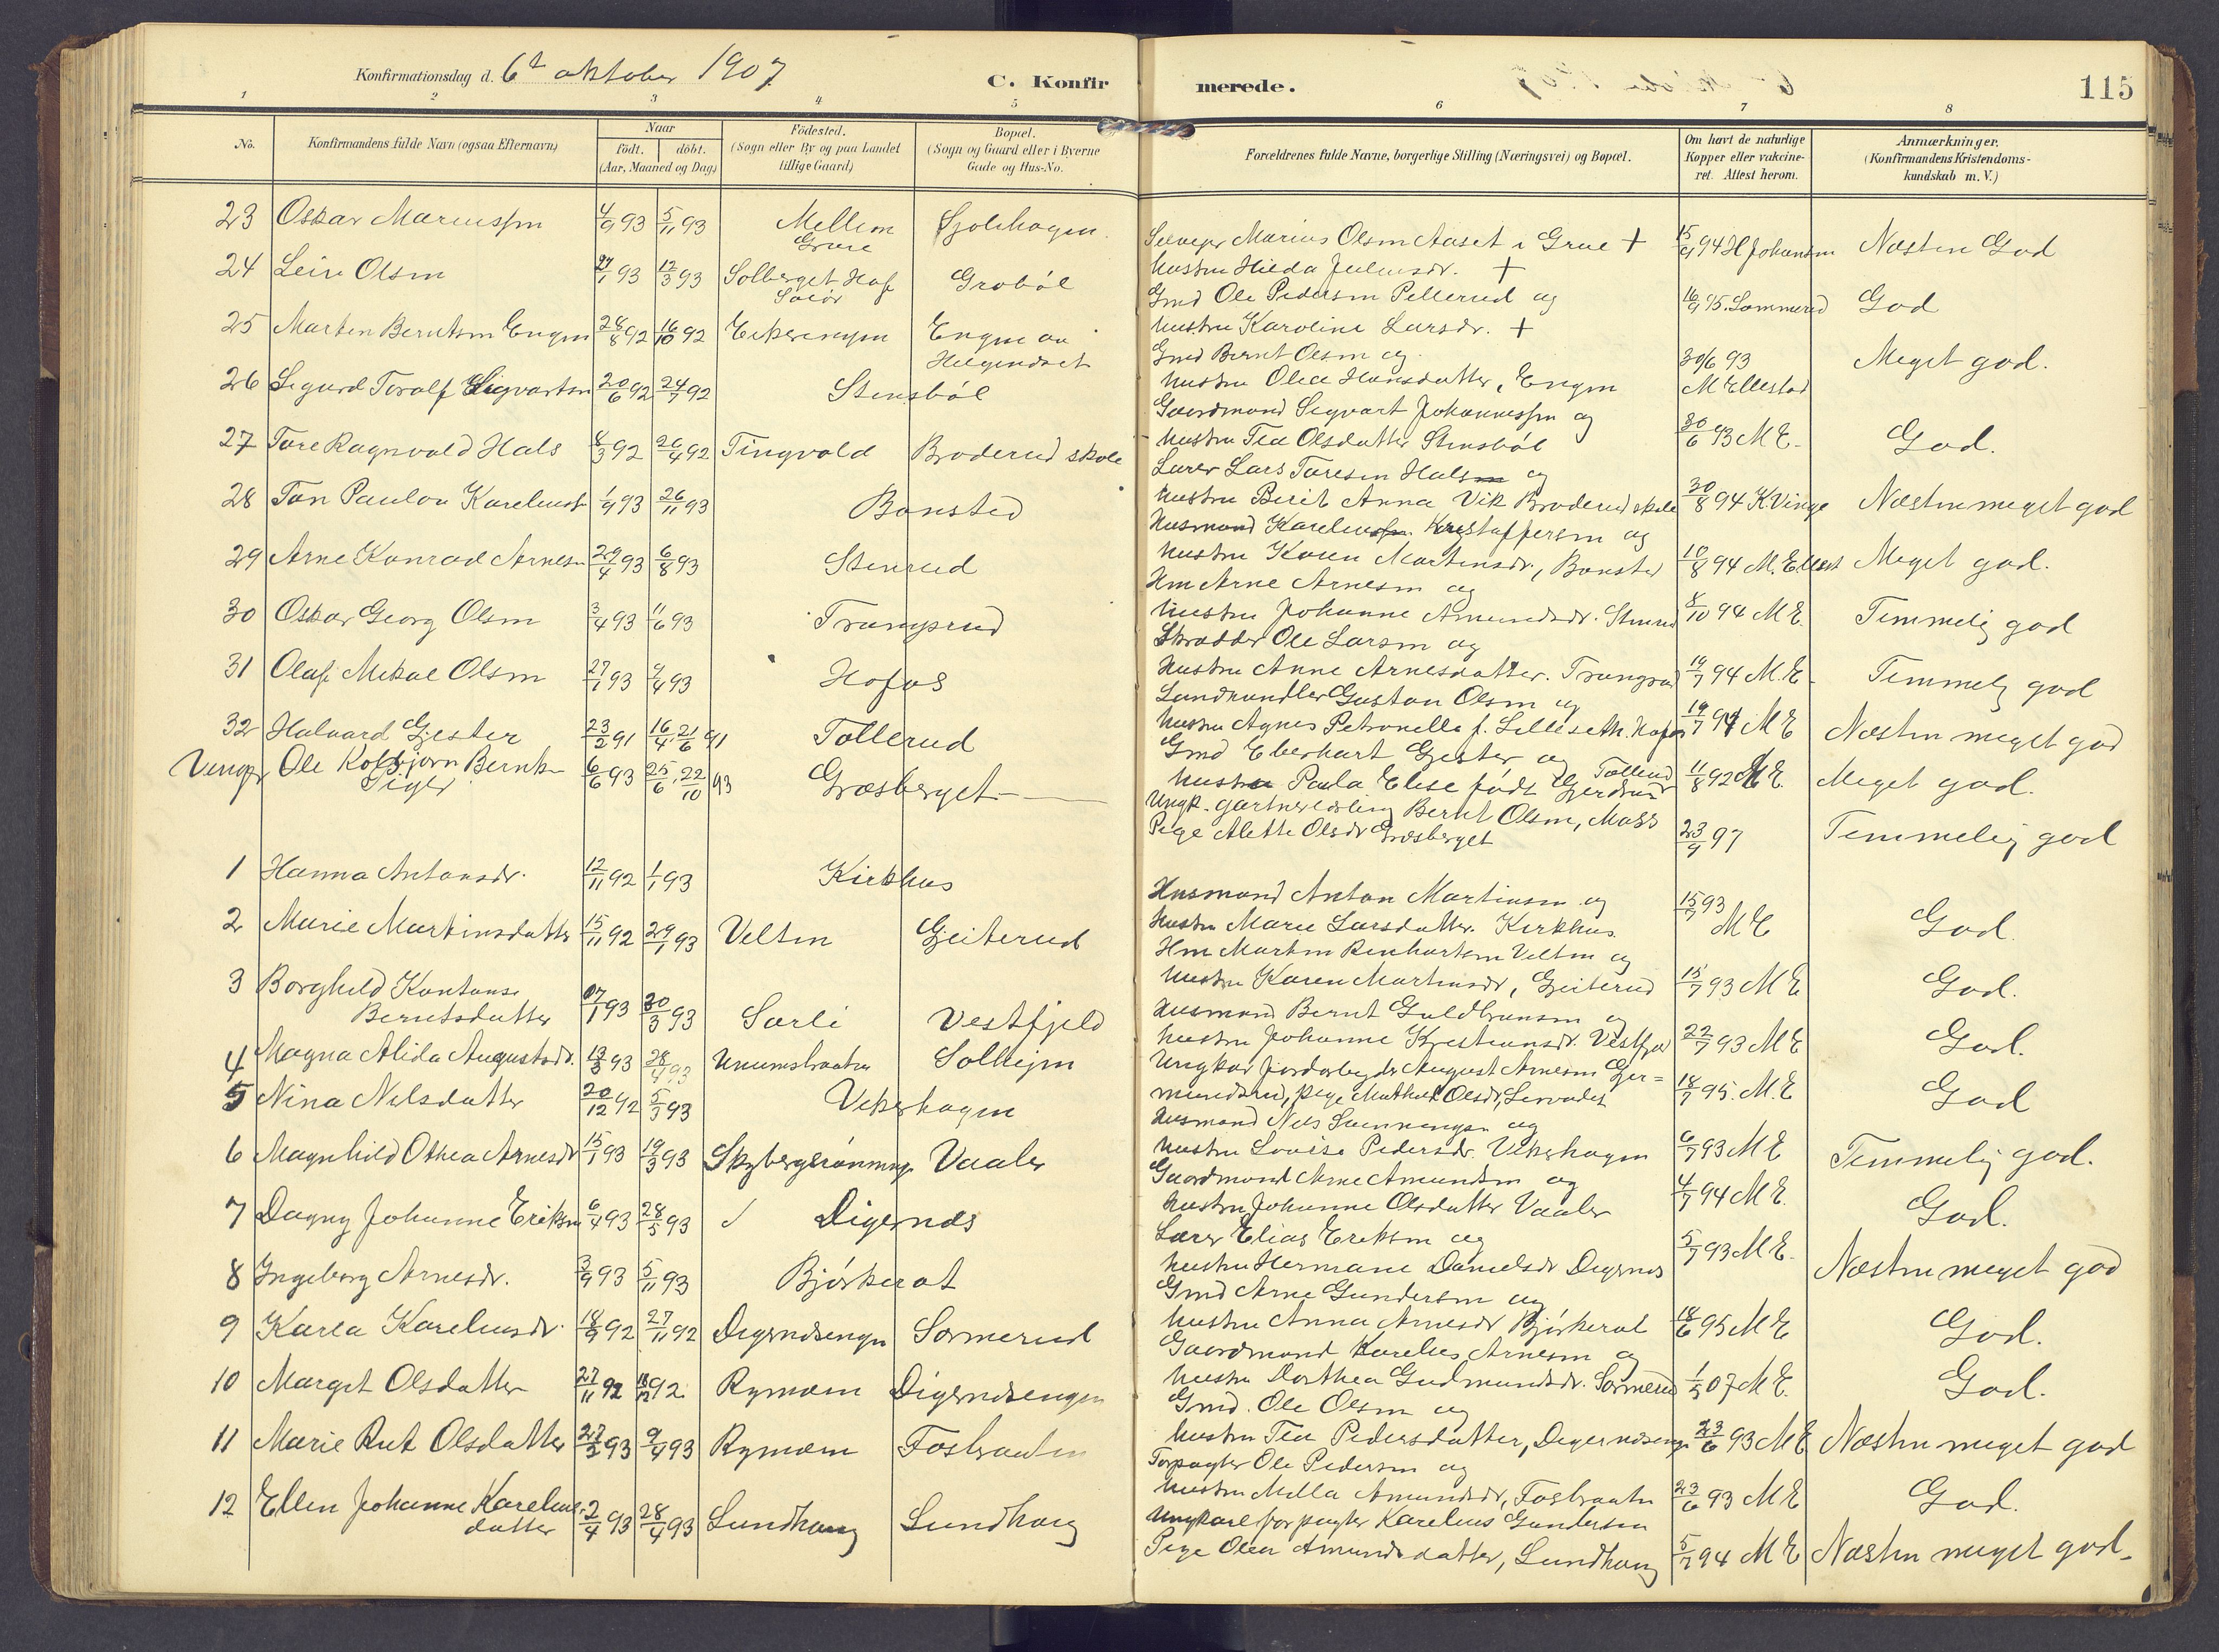 Konfirmationsdag d. 6t oktober 1907
C. Konfir
merede.
115
1 2 3 4 5 6 7 8
No.
Konfirmandens fulde Navn (ogsaa Efternavn)
Naar
födt. döbt.
(Aar, Maaned og Dag)
Födested.
(Sogn eller By og paa Landet
tillige Gaard)
Bopæl.
(Sogn og Gaard eller i Byerne
Gade og Hus-No.
Forældrenes fulde Navne, borgerlige Stilling (Næringsvei) og Bopæl.
Om havt de naturlige
Kopper eller vakcine-
ret. Attest herom.
Anmærkninger.
(Konfirmandens Kristendoms-
kundskab m. V.)
23 Oskar Mariussen 4/9 93 5/11 93 Mellem Grue Sjolihagen
Selvejer Marius Olsen Aaset i Grue +
hustru Hilda Juliusdr. +
15/9 94 H Johansen Næsten God
24 Leiv Olsen 27/1 93 12/3 93 Solberget Hof Soløer Grobøl
Gmd Ole Pedersen Pellerud og
hustru Karoline Larsdr. +
16/9 95. Sommerud God
25 Marten Berntsen Engen 28/8 92 16/10 92 Engen
Gmd Bernt Olsen og
hustru Olea Hansdatter, Engen
30/6 93
M Ellestad Meget god.
26 Sigurd Toralf Sigvartsen 20/6 92 24/7 92 Stensbøl
Gaardmand Sigvart Johannessen og
hustru Tea Olsdatter Stensbøl
30/6 93 M E. God.
27 Tore Ragnvald Hals 8/3 92 26/4 92 Tingvold Broderud skole
Lærer Lars Toresen Hals og
hustru Berit Anna Vik Broderud skole
30/8 94 K. Vinge Næsten meget god
28 Ton Paulou Kareliusd 1/9 93 26/11 93 Bonsted
Husmand Karelius Kristoffersen og
hustru Karen Martinsdr., Bonsted
10/8 94 M. Ellest Meget god.
29 Arne Konrad Arnesen 29/4 93 6/8 93 Stenrud
Hm Arne Arnesen og
hustru Johanne Amundsdr. Stenrud
8/10 94 M E. Temmelig god
30 Oskar Georg Olsen 3/4 93 11/6 93 Trangsrud
Skrædder Ole Larsen og
Hustru Anne Arnesdatter. Trangsrud
19/7 94 M. E Temmelig god
31 Olaf Mikal Olsen 27/1 93 9/4 93 Hofos
Landhandler Gustav Olsen og
hustru Agnes Petronelle f. Lilleseth. Hofos
19/7 94 M E Næsten meget god
32 Halvard Gjester 23/2 91 16/4 21/6 91 Tollerud
Gmd Eberhart Gjester og Tollerud
hustru Paula Elise født Gjerdrum
11/8 92 M E. Meget god.
Ole Kolbjørn Bernt 6/6 93 25/6, 22/10 93 Græsberget
Ungk. gartnerlærling Bernt Olsen, Moss
Pige Alette Olsdr Græsberget
23/9 97 Temmelig god
1 Hanna Antonsdr. 12/11 92 1/1 93 Kirkhus
Husmand Anton Martinsen og
hustru Marie Larsdatter. Kirkhus
15/7 93
M E God.
2 Marie Martinsdatter 15/11 92 29/1 93 Velten Gjeiterud
Hm Martin Reinhartsen Velten og
hustru Karen Martinsdr, Gjeiterud
15/7 93 M E God.
3 Borghild Konstanse
Berntsdatter 17/1 93 30/3 93 Sørli Vestfjeld
Husmand Bernt Guldbransen og
hustru Johanne Kristiansdr. Vestfjeld
22/7 93 M E God.
4 Magna Alida Augustsdr. 13/3 93 28/4 93 Unumsbraaten Solhejm
Ungkar jordarbejder August Arnesen Ger=
mundsrud, pige Mathea Olsdr,
18/7 95. M. E God
5 Nina Nilsdatter 20/12 92 5/3 93 Vekerhagen
Husmand Nils og
hustru Lovise Pedersdr. Vekerhagen
6/7 93 M E Temmelig god.
6 Magnhild Othea Arnesdr 15/1 93 19/3 93 Skybergs Vaaler
Gaardmand Arne Amundsen og
hustru Johanne Olsdatter Vaaler
4/7 94 M E. God.
7 Dagny Johanne Eriksen 6/4 93 28/5 93 Digernes
Lærer Elias Eriksen og
hustru Hermane Danielsdr Digernes
5/7 93 M E. Næsten meget god
8 Ingeborg Arnesdr. 3/9 93 5/11 93 Bjørkerot
Gmd Arne Gundersen og
hustru Anna Arnesdr Bjørkerot
18/6 95 M E God.
9 Karla Kareliusdr. 18/9 92 27/11 92 Digernesengen Sormerud
Gaardmand Karelius Arnesen og
hustru Dorthea Gudmundsdr. Sormerud
1/5 07 M E. God.
10 Margit Olsdatter 27/11 92 18/12 92 Rymoen Digernesengen
Gmd. Ole Olsen og
hustru Tea Pedersdatter, Digernesengen
23/6 93 M E Næsten meget god
11 Marie Rut Olsdatter 27/2 93 9/4 93 Rymoen Fosbraaten
Forpagter Ole Pedersen og
hustru Milla Amundsdr, Fosbraaten
23/6 93 M E God.
12 Ellen Johanne Karelius
datter 2/4 93 28/4 93 Lundhaug Lundhaug
Ungkarl forpagter Karelius Gundersen
Pige Olea Amundsdatter, Lundhaug
5/7 94 M E Næsten meget god.